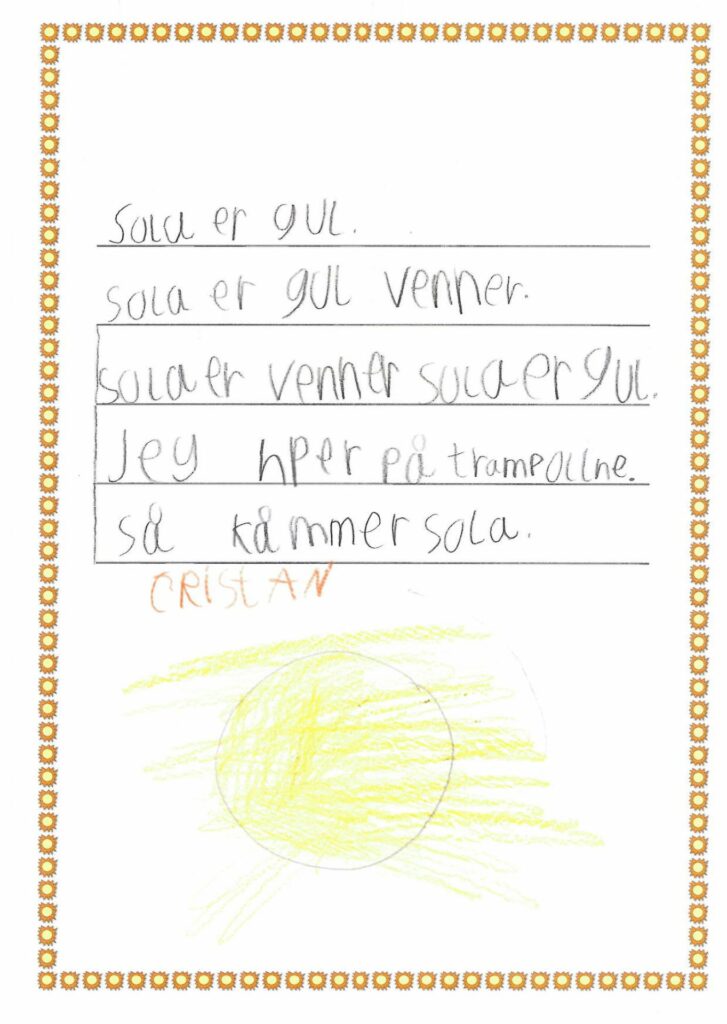 Sola er gul.
sola er gul venner.
sola er venner sola er gul.
Jey hper på trampoline.
så kåmmer sola.
CRISTAN